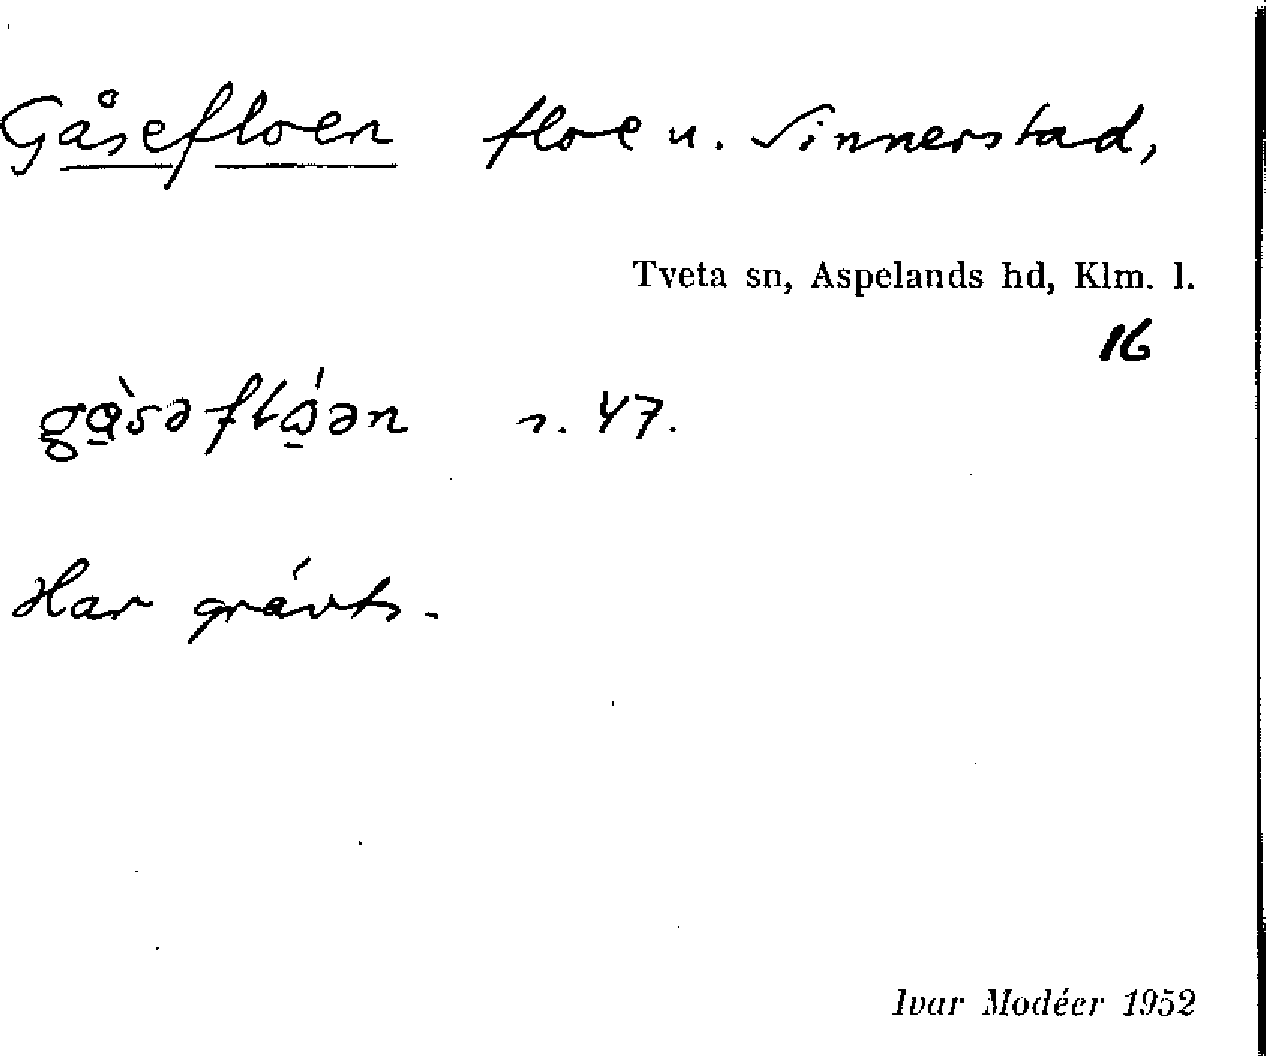 Gåsefloen floe u. Sinnerstad,
Tveta sn, Aspelands hd, Klm. l.
16
gɑ̱̀səflɷ̱́ən s. 47.
Har grävts.
Ivar Modéer 1952